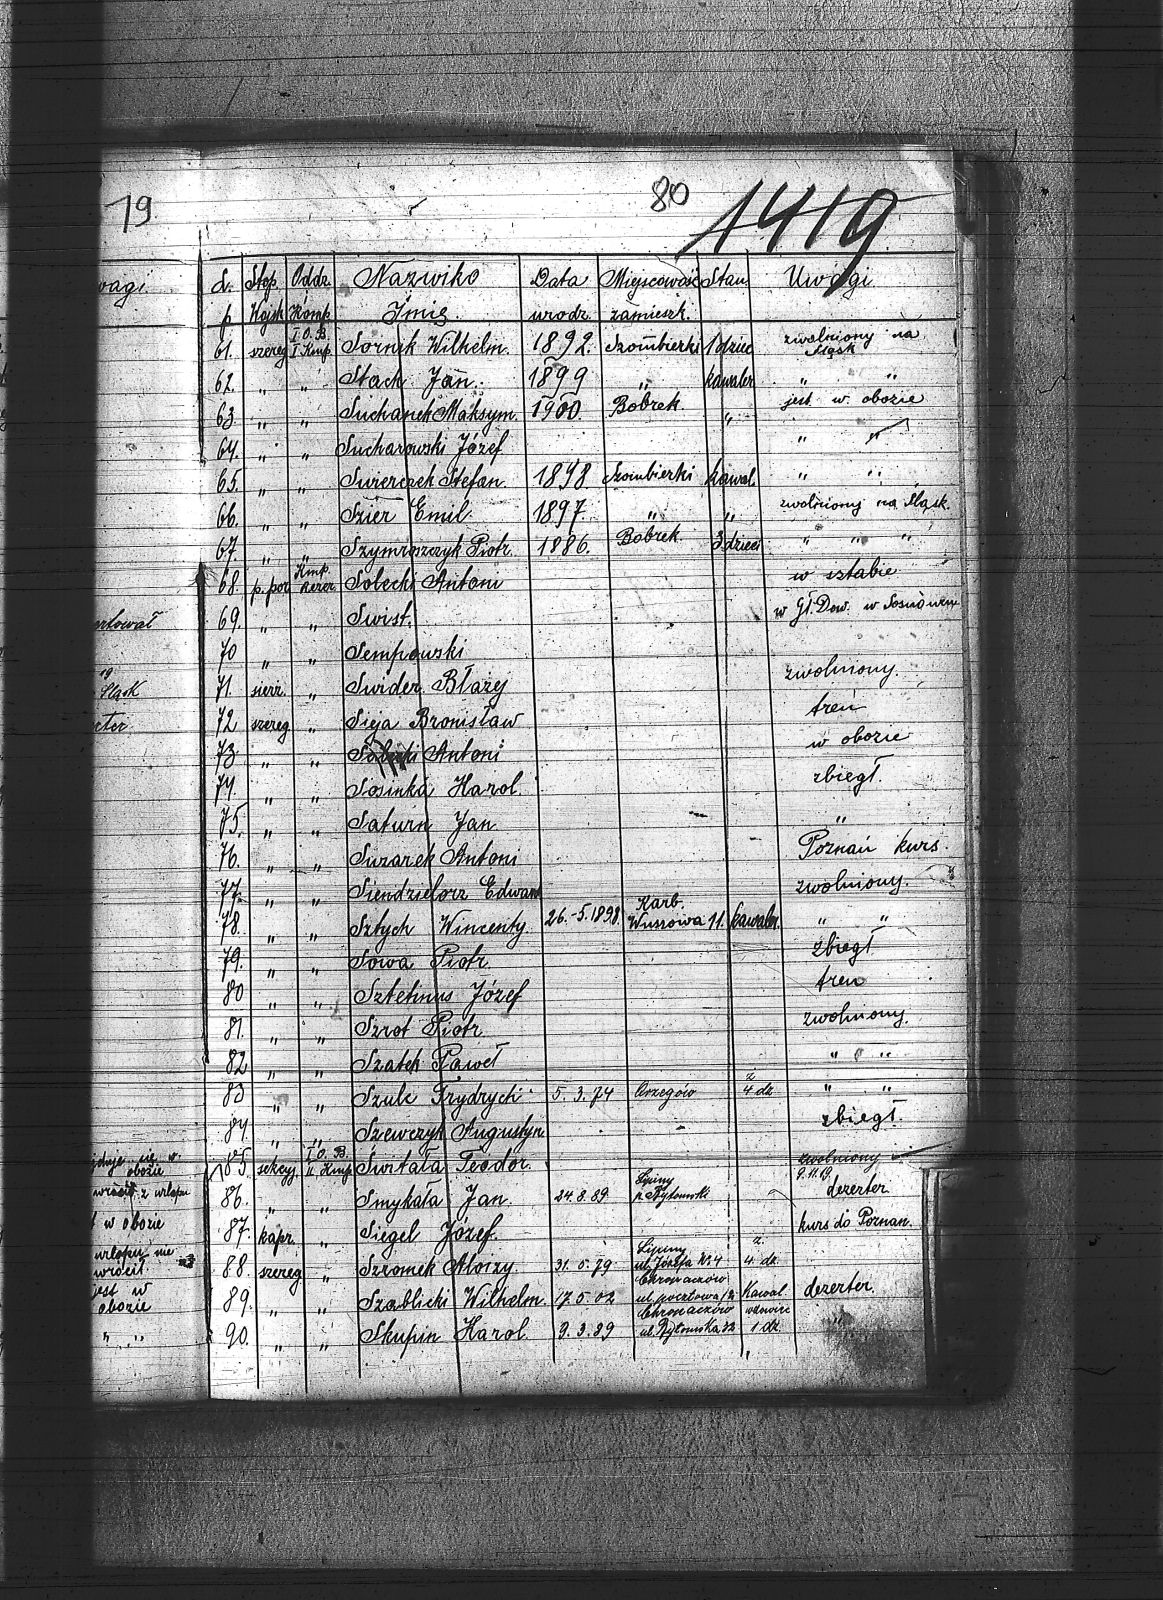 19
80
1419
wagi
L. Stop. Oddz. Nazwiko Data Miejscowość Stan Uwagi
p. Wojsk Komp. Imię urodz. zamieszk.
61. szereg I O. B. I Kmp. Sornik Wilhelm. 1892. Szombierki 1 dziec zwolniony na Śląsk
62. " " Stach Jan. 1899 " kawaler " "
63 " " Suchanek Maksym. 1900. Bobrek. " jest w obozie
64. " " Sucharowski Józef " "
65. " " Świerczek Stefan. 1898 Szombierki kawal. " "
66. " " Szier Emil. 1897. " " zwolniony na Śląsk.
67. " " Szymroszczyk Piotr. 1886. Bobrek. 3 dzieci " " "
68. p. por Kmp. Rezer Solecki Antoni w sztabie
69. " " Swist. w Gł. Dow. w Sosnowcu
70 " " Sempowski
71. sierż. " Swider Błażej zwolniony.
72 szereg " Sieja Bronisław tren
73. " " Antoni w obozie
74. " " Sosinka Karol. zbiegł.
75. " " Saturn Jan "
76. " " Surarek Antoni Poznań kurs.
77. " " Siendzielorz Edward zwolniony.
78. " " Sztych Wincenty 26.-5.1898. Karb. Wussowa 11. kawaler. " "
79. " " Sowa Piotr. zbiegł
80 " " Sztetinus Józef tren
81. " " Szrot Piotr zwolniony.
82 " " Szatek Paweł " "
83 " " Szulc Frydrych 5. 3. 74 Orzegów ż 4 dz " "
84. " " Szewczyk Augustyn zbiegł.
85. sekcyj. I O. B. II Kmp. Świtała Teodor. zwolniony 9.11.19.
86. " " Smykała Jan 24. 8. 89. Lipiny p. Bytomski " dezerter
87. kapr. " Siegel Józef kurs do Poznan.
88 szereg " Szromek Aloizy. 31. 5. 79 Lipiny ul. Józefa Nr 4 ż. 4 dz.
89. " " Szablicki Wilhelm. 17 5. 02 Chropaczów ul. pocztowa Kawal dezerter
90. " " Skupin Karol. 3. 3. 89 Chropaczów ul. Bytomska 32 1. dz. "
ertował
19
Śląsk
rter
jduje się w
obozie
wrócił z urlopu
w obozie
urlopu nie
wrócił
jest w
obozie
" "